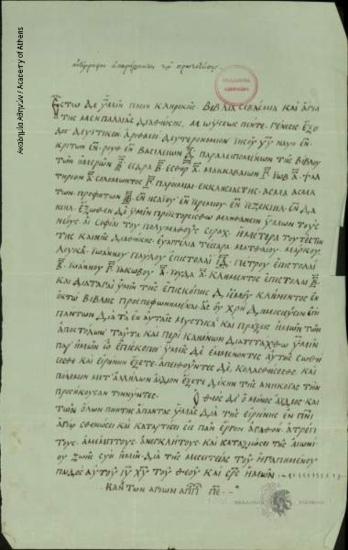 Ακαδημία Αθηνών / Academy of Athens
ΑΚΑΔΗΜΙΑ
ΑΘΗΝΩΝ
Ἔστω δὲ ὑμῖν πᾶσι κληρικοῖς βιβλία σεβάσμια καὶ ἅγια
τῆς μὲν παλαιᾶς διαθήκης, μωϋσέως πέντε. γένεσις ἔξο
δος λευιτικὸν ἀριθμοὶ δευτερονόμιον ἰησοῦ υἱοῦ ναυῆ ἓν
κριτῶν ἓν ῥουθ ἓν βασιλειῶν παραλειπομένων τῆς βίβλου
τῶν ἡμερῶν ἔσδρα ἐσθὴρ μακκαβαίων ἰὼβ ψαλ
τήριον σολομῶντος παροιμίαι ἐκκλησιαστὴς ᾆσμα ᾀσμά
των προφητῶν ἓν ἡσαΐου ἓν ἱερεμίου ἓν ἰεζεκιὴλ ἓν δα
νιήλ. ἔξωθεν δὲ ὑμῖν προσιστορείσθω μανθάνειν ὑμῶν τοὺς
νέους τὰς σοφίας τοῦ πολυμαθοῦς σιράχ. ἡμέτερα τουτέστιν
τῆς καινῆς διαθήκης. εὐαγγέλια τέσσαρα ματθαίου μάρκου
λουκᾶ ἰωάννου παύλου ἐπιστολαὶ πέτρου ἐπιστολαὶ
ἰωάννου ἰακώβου ἰούδα κλήμεντος ἐπιστολαὶ
καὶ διαταγαὶ ὑμῖν τοῖς ἐπισκόποις δι' ἐμοῦ κλήμεντος ἐν
ὀκτὼ βιβλίοις προσπεφωνημέναι ἃς οὐ χρὴ δημοσιεύειν ἐπὶ
πάντων διὰ τὰ ἐν αὐταῖς μυστικὰ καὶ πράξεις ἡμῶν τῶν
ἀποστόλων ταῦτα καὶ περὶ κανόνων διατετάχθω ὑμῖν
παρ' ἡμῶν ὦ ἐπίσκοποι ὑμεῖς δὲ ἐμμένοντες αὐτοῖς σωθή
σεσθε καὶ εἰρήνην ἕξετε ἀπειθοῦντες δὲ κολασθήσεσθε καὶ
πόλεμον μετ' ἀλλήλων ἀΐδιον ἕξετε δίκην τῆς ἀνηκοΐας τὴν
προσήκουσαν τιννύντες.
ὁ θεὸς δὲ ὁ μόνος ἀΐδιος καὶ
τῶν ὅλων ποιητὴς ἅπαντας ὑμᾶς διὰ τῆς εἰρήνης ἐν πνι
ἁγίῳ ἑνώσει καὶ καταρτίσει εἰς πᾶν ἔργον ἀγαθὸν ἀτρέπ
τους ἀμέμπτους ἀνεγκλήτους καὶ καταξιώσει τῆς αἰωνί
ου ζωῆς σὺν ἡμῖν διὰ τῆς μεσιτείας τοῦ ἠγαπημένου
παιδὸς αὐτοῦ ιυ χυ τοῦ θεοῦ καὶ σρς ἡμῶν